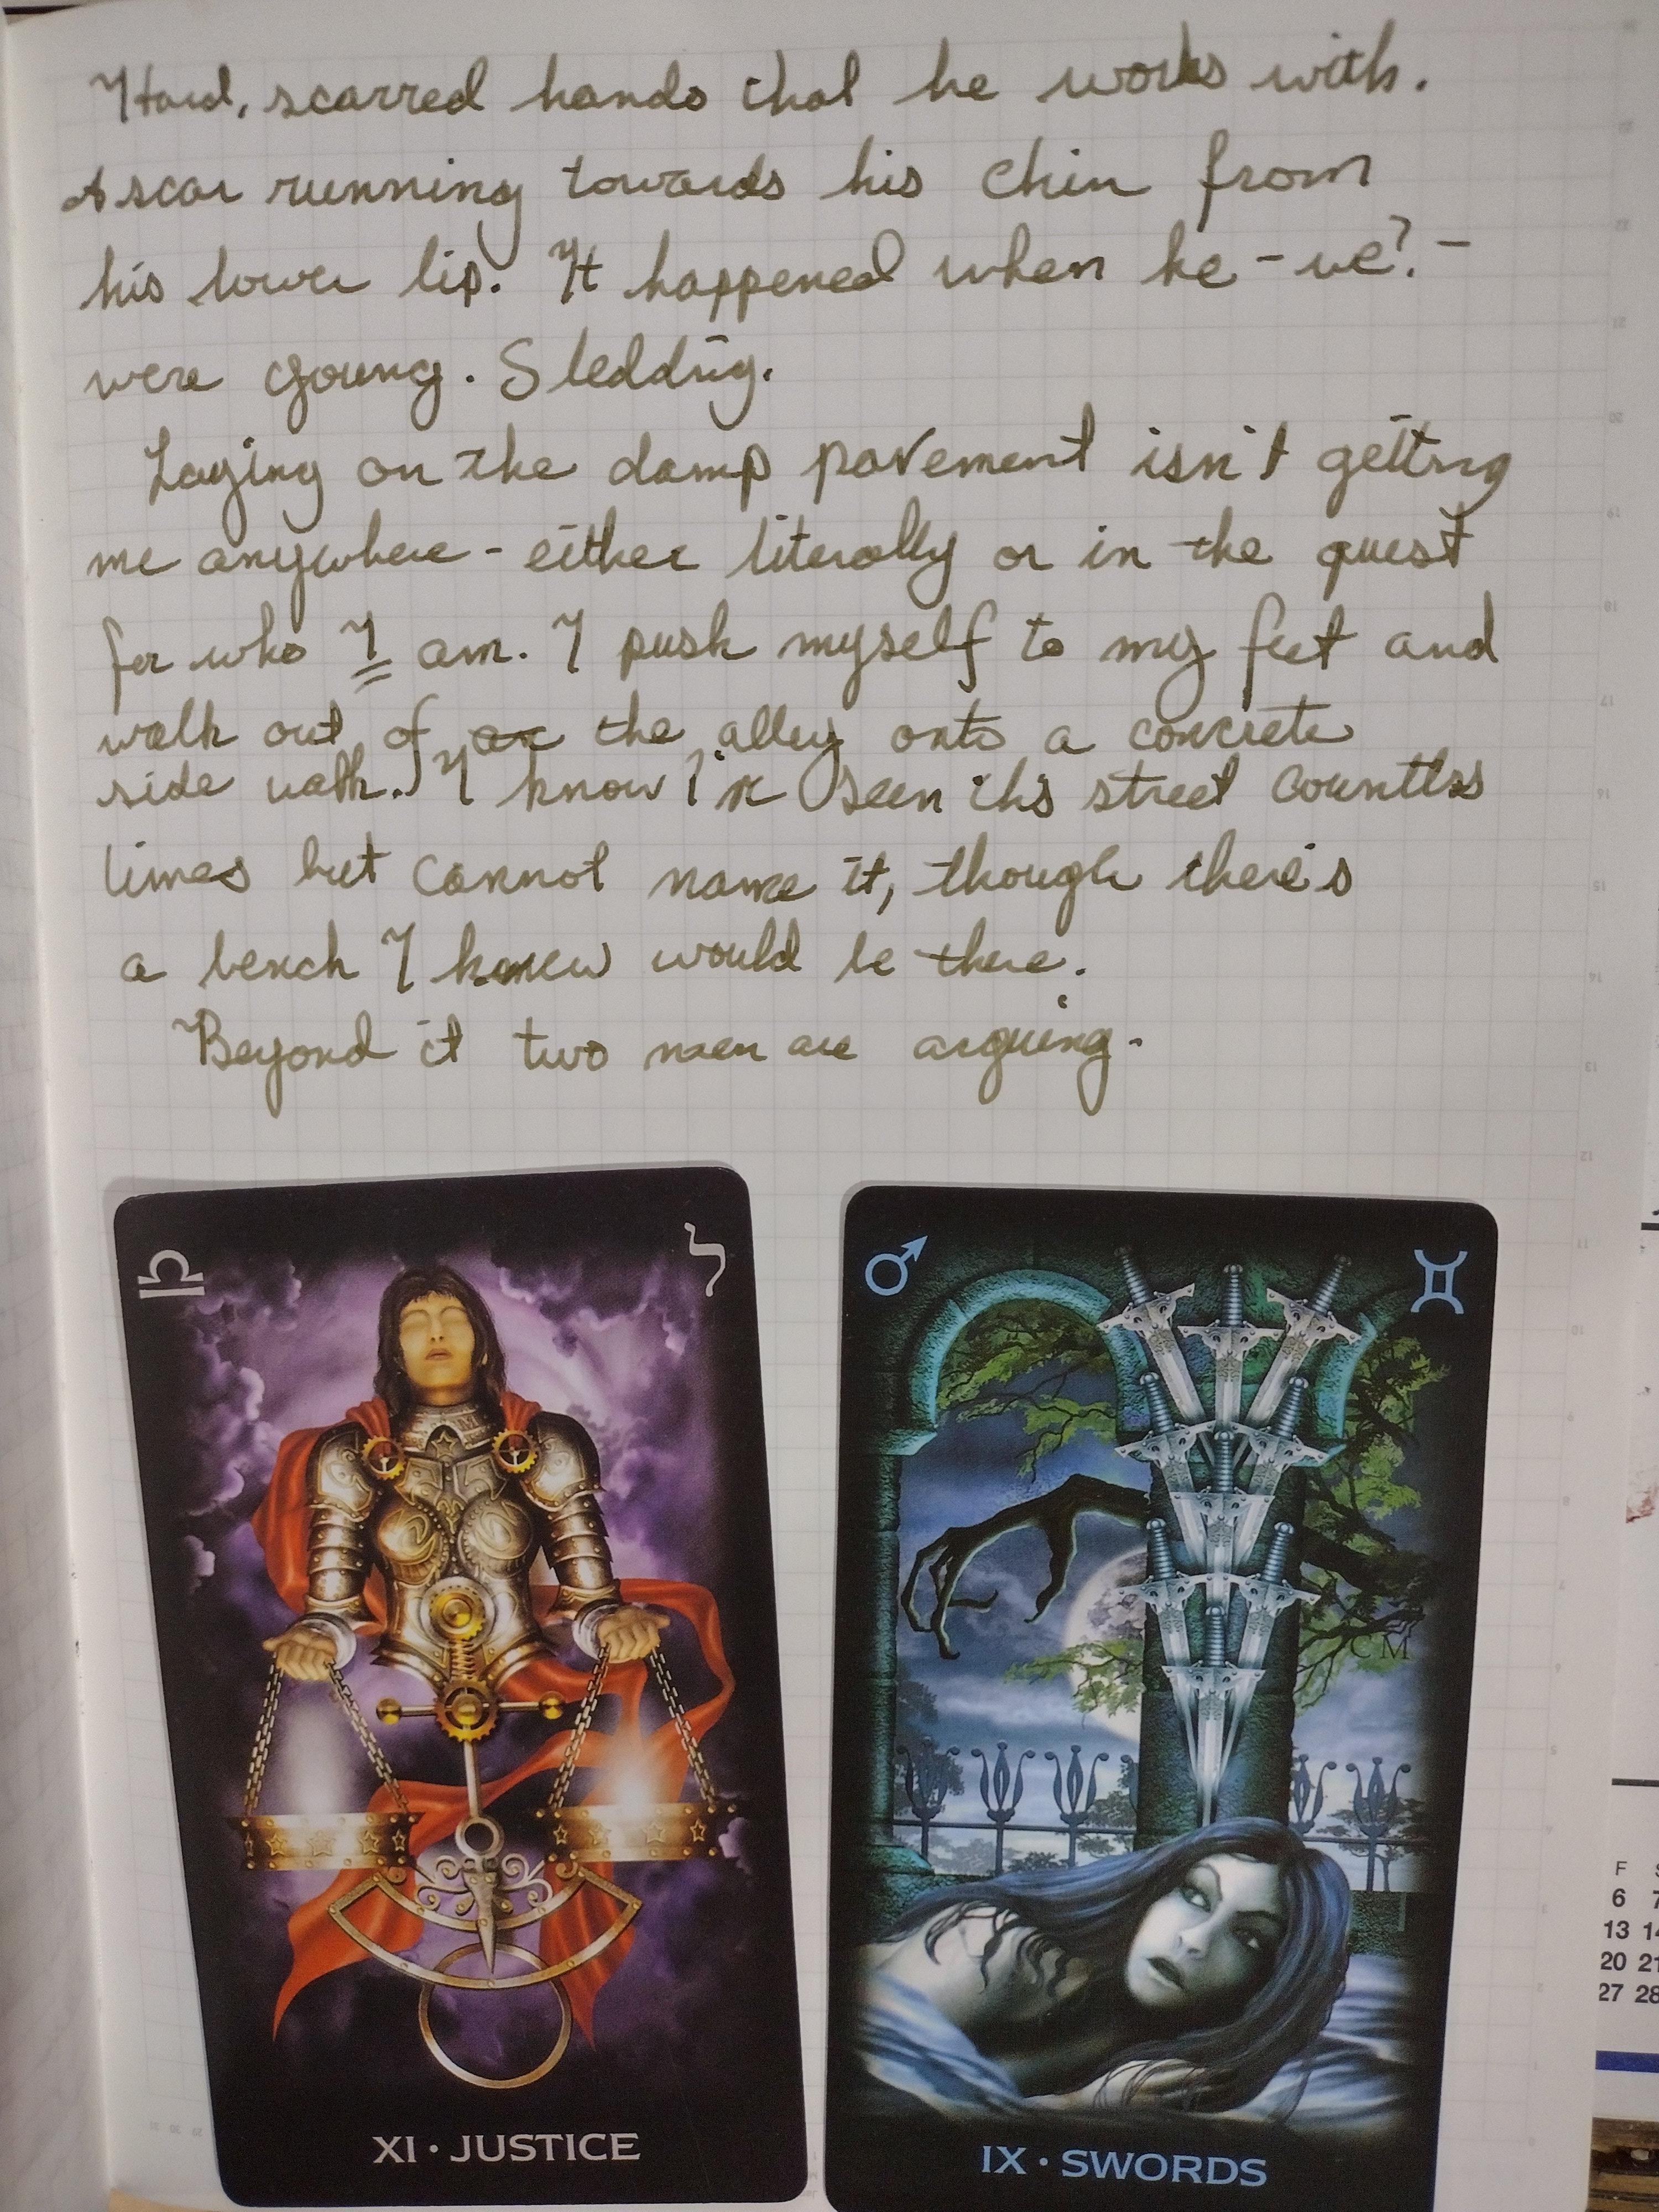 Hard, scarred hands that he works with.
A scar running towards his chin from
his lower lip. It happened when he - we? -
were young. Sledding.
Laying on the damp pavement isn't getting
me anywhere - either literally or in the quest
for who I am. I push myself to my feet and
walk out of the alley onto a concrete
side walk. I know I've seen this street countless
times but cannot name it, though there's
a bench I knew would be there.
Beyond it two men are arguing.
♎ ל
♂ ♊
CM
XI · JUSTICE
IX · SWORDS
F S
6 7
13 14
20 21
27 28